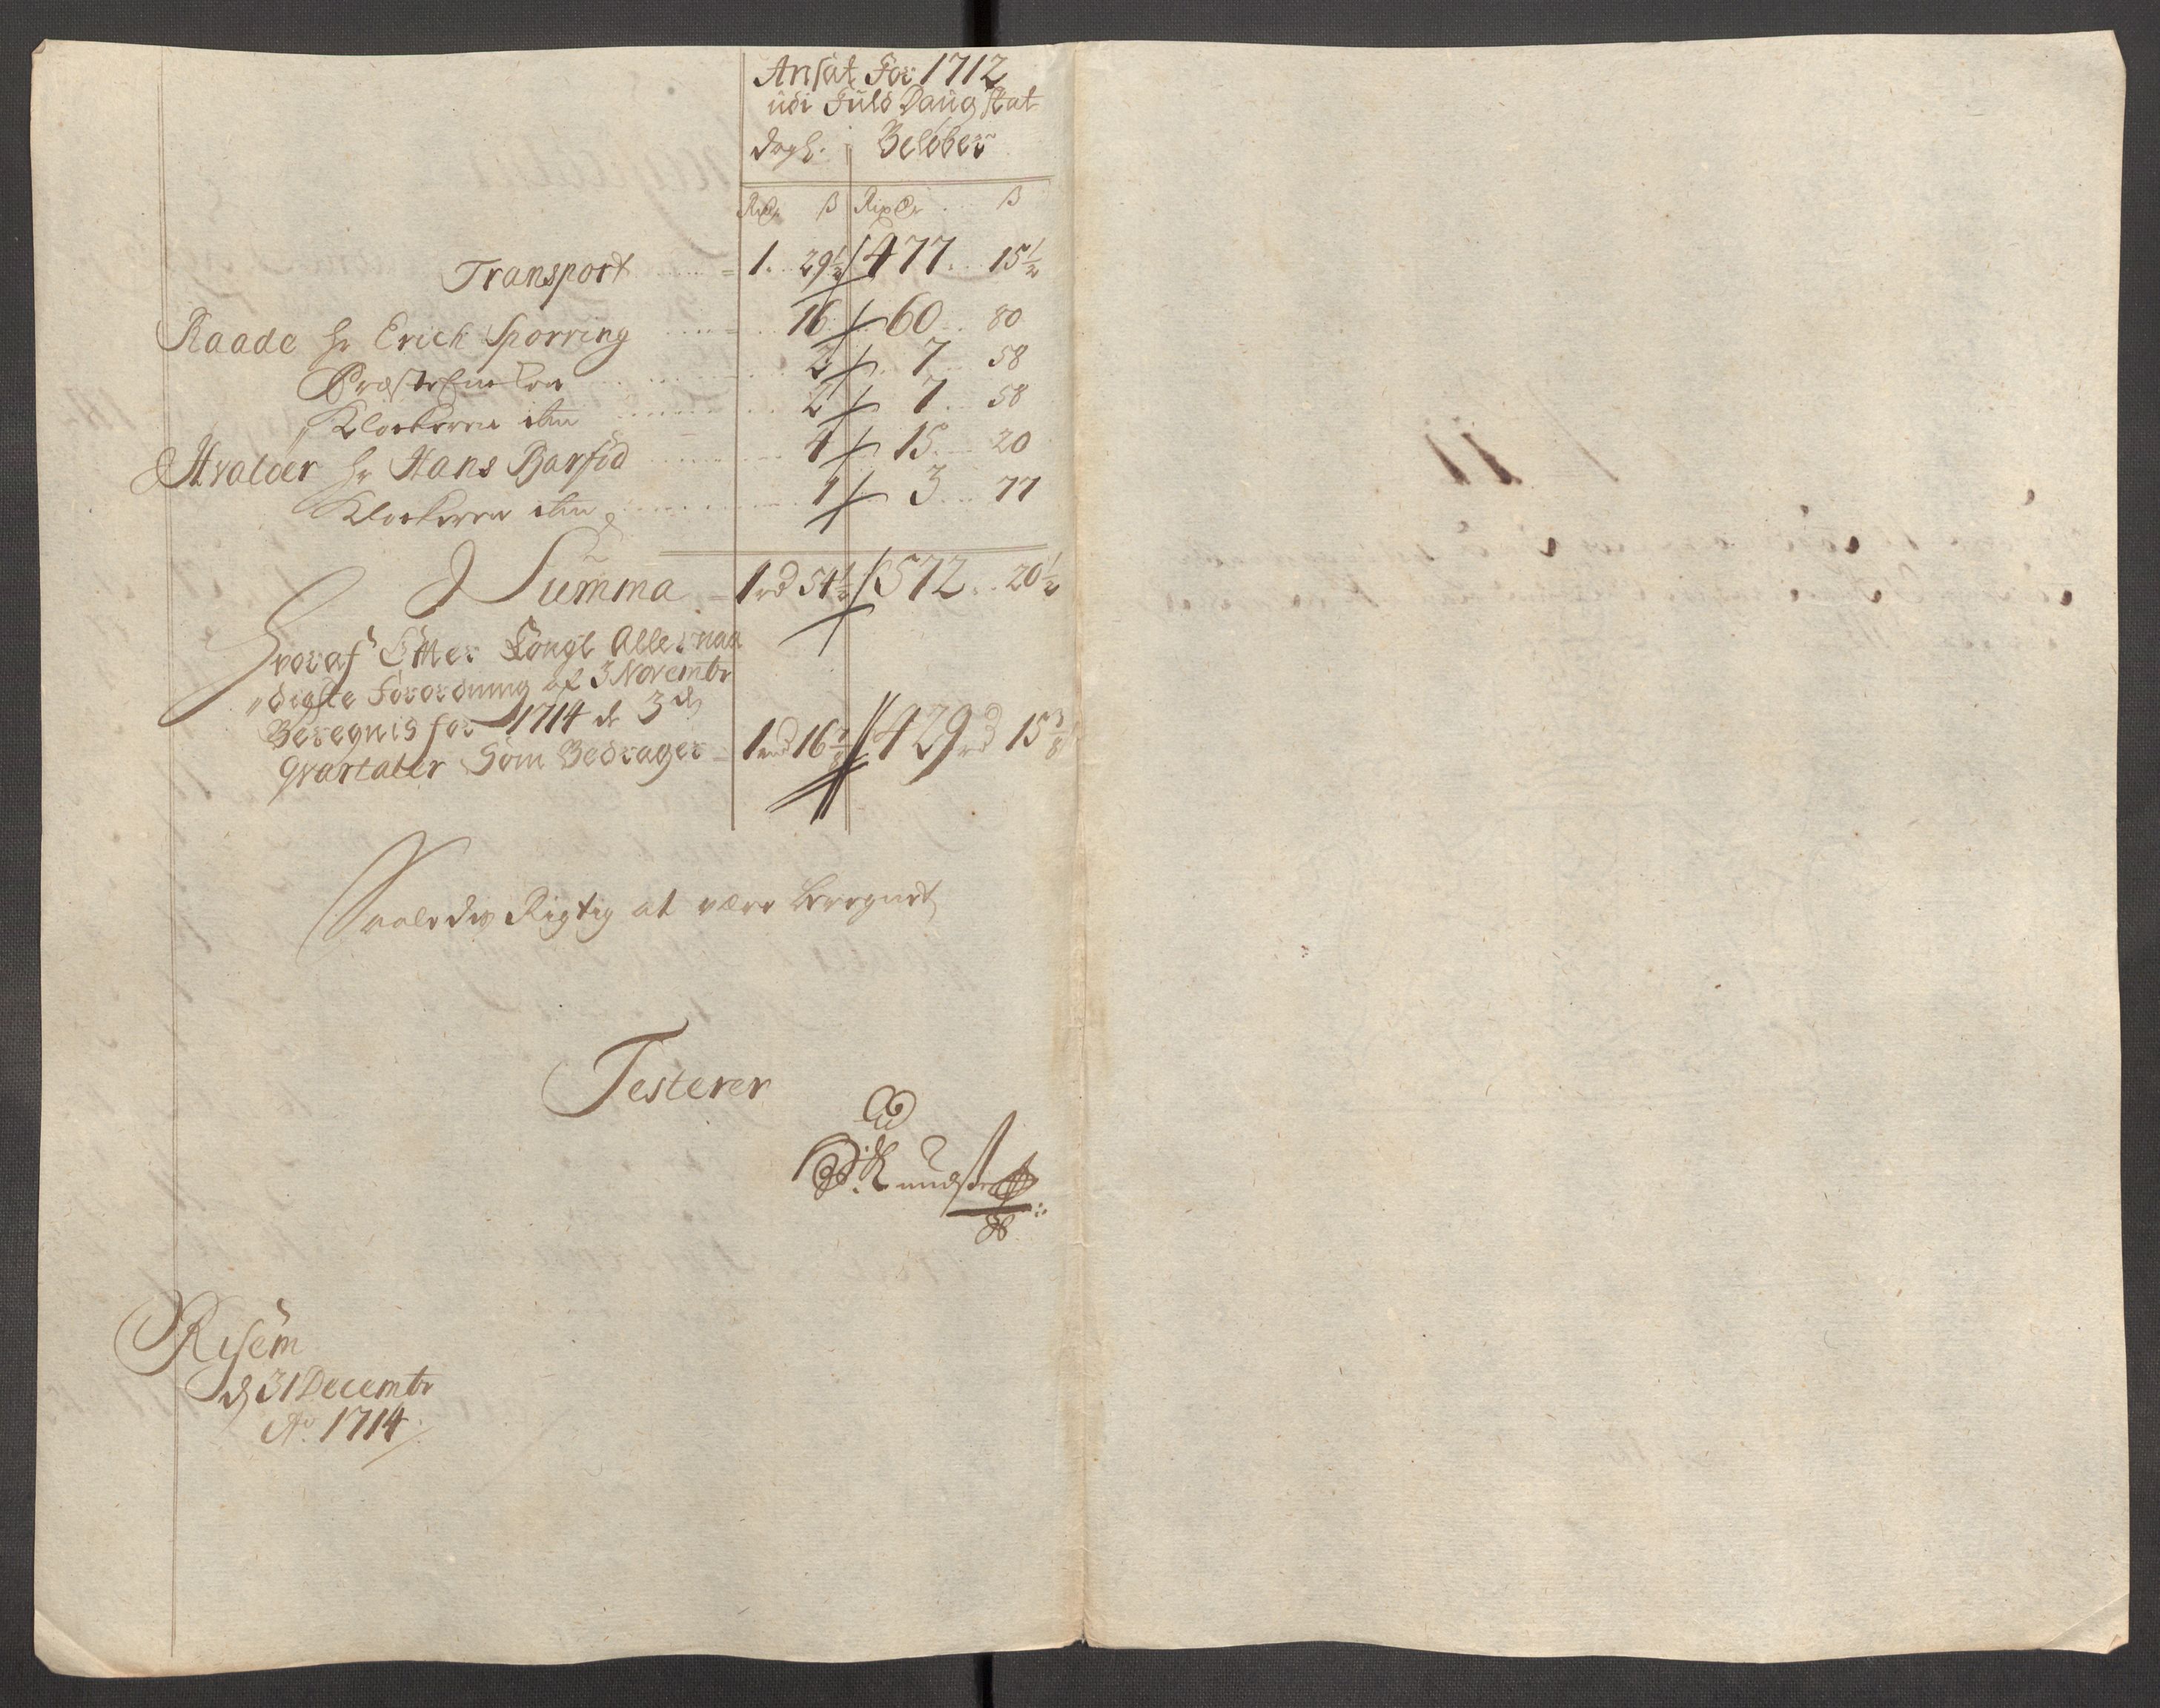 Ansat For 1712
udi Fuld Daug Skat
dagl. Beløber
Rixdr ß Rixdr ß
Transport 1. 29½ 477. 15½
Raade Hr Erich Sporring 16 60 80
Præste Enken 2 7 58
Klockeren ibm 2 7 58
Hvaloer Hr Hans Barfod 4 15 20
Klockeren ibm 1 3 77
Summa 1rd 54½ 572 20½
Hvoraf Efter Kongl Allernaa
digste Forordning af 3 Novembr
Beregnis for 1714 de 3de
Qvartaler Som Bedrager 1rd 16⅞ 429rd 15⅜
Saaledis Rigtig at være beregnet
Testerer
Risem
d 31 Decembr
Ao 1714